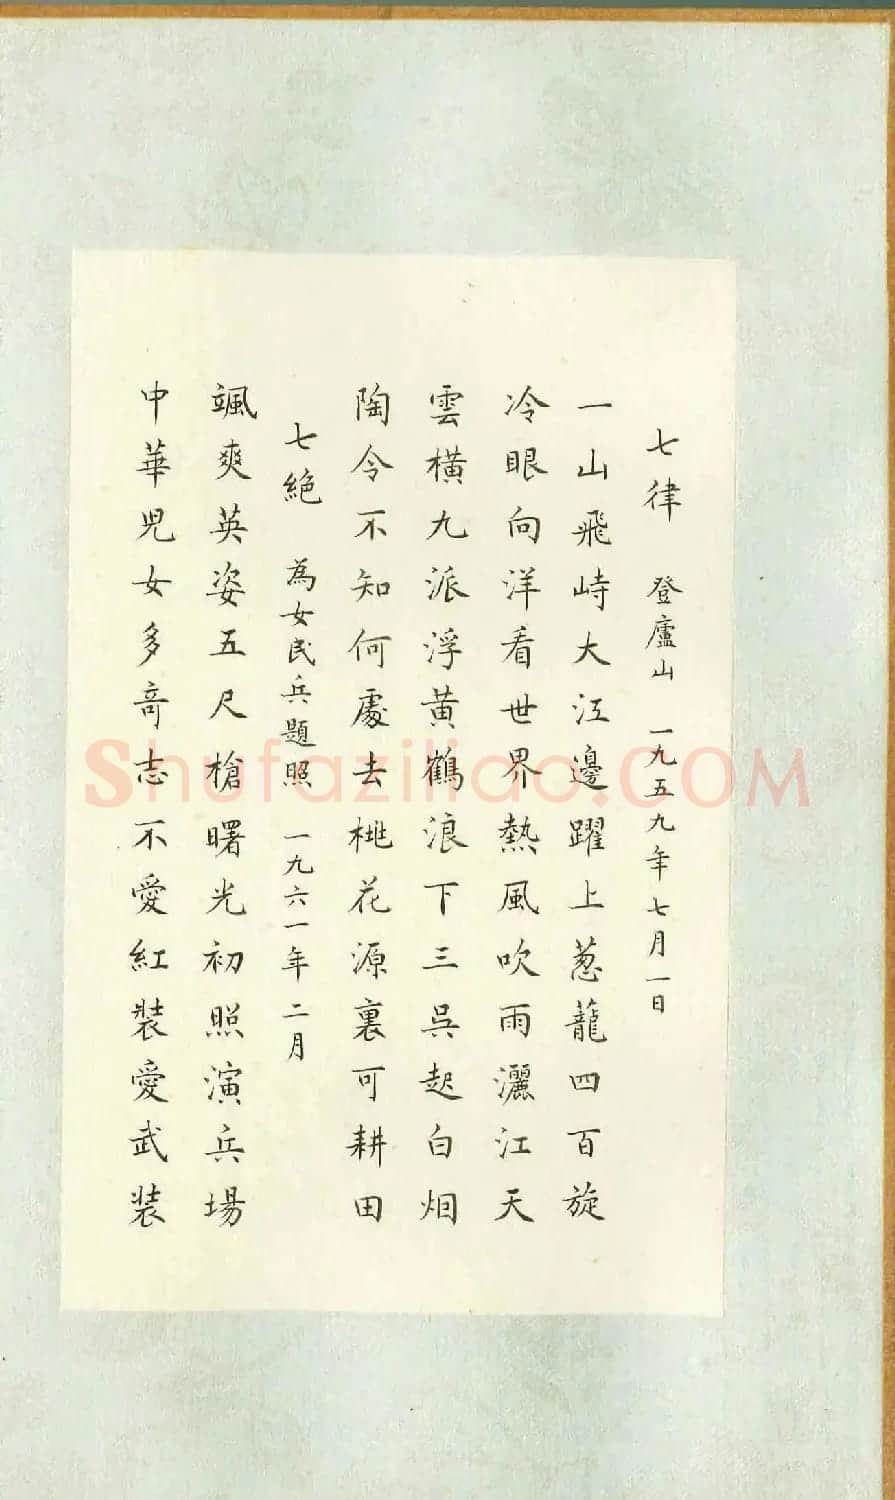 七律 登廬山 一九五九年七月一日
一山飛峙大江邊躍上葱蘢四百旋
冷眼向洋看世界熱風吹雨灑江天
雲橫九派浮黃鶴浪下三吳起白烟
陶令不知何處去桃花源裏可耕田
七絕 為女民兵題照 一九六一年二月
颯爽英姿五尺槍曙光初照演兵場
中華兒女多奇志不愛紅裝愛武裝
Shufaziliao.COM